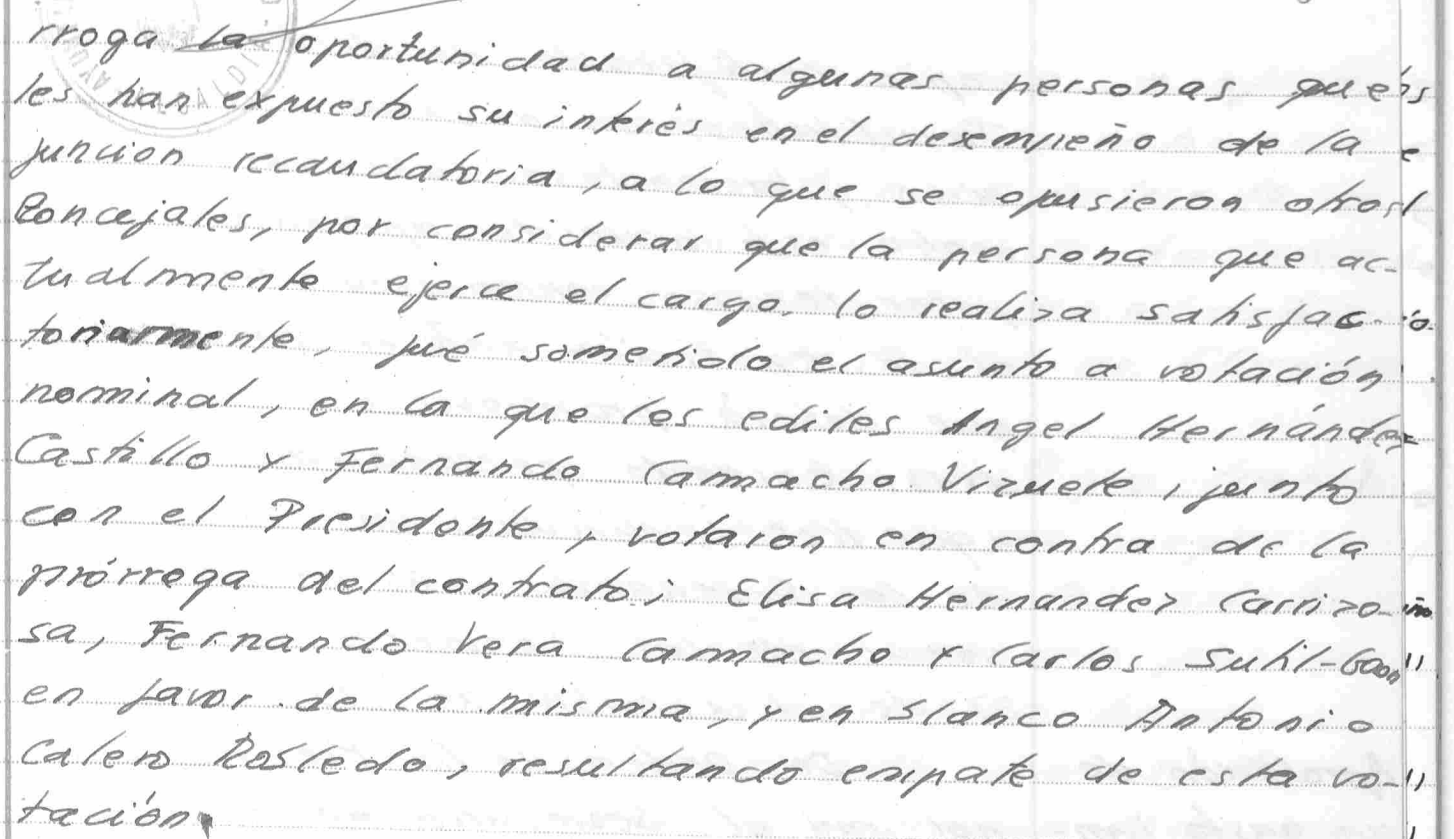 rroga la oportunidad a algunas personas que
les han expuesto su interés en el desempeño de la
función recaudatoria, a lo que se opusieron otros
Concejales, por considerar que la persona que ac-
tualmente ejerce el cargo, lo realiza satisfac-
toriarmente, fué sometido el asunto a votación
nominal, en la que los ediles Angel Hernández
Castillo y Fernando Camacho Vizuete, junto
con el Presidente, votaron en contra de la
prórroga del contrato; Elisa Hernandez Carrizo-
sa, Fernando Vera Camacho y Carlos Sutil-Gaon
en favor de la misma, y en blanco Antonio
Calero Robledo, resultando empate de esta vo-
tación.